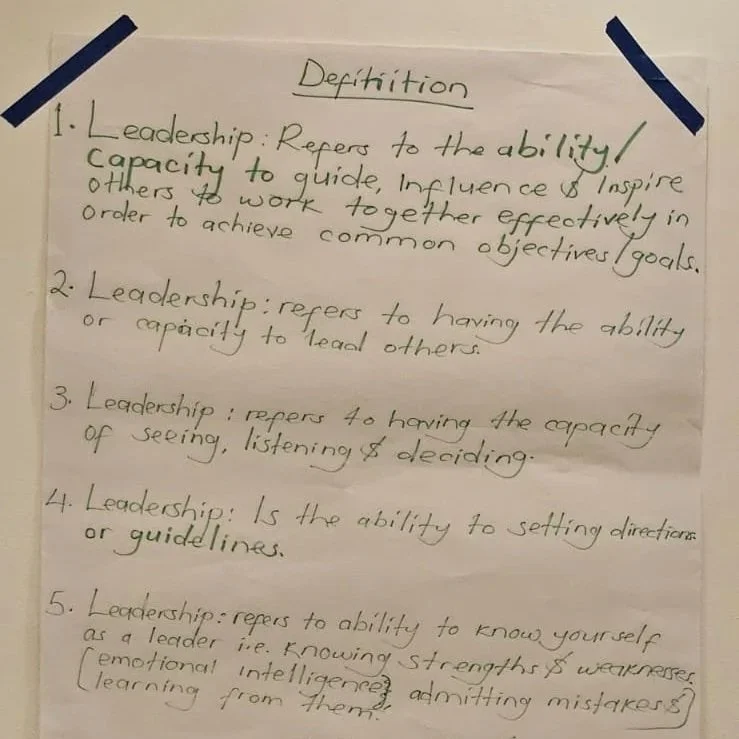 Defitiition
1. Leadership: Refers to the ability/
capacity to guide, Influence & Inspire
others to work together effectively in
order to achieve common objectives/goals.
2. Leadership: refers to having the ability
or capacity to lead others.
3. Leadership: refers to having the capacity
of seeing, listening & deciding.
4. Leadership: Is the ability to setting directions
or guidelines.
5. Leadership: refers to ability to know yourself
as a leader i.e. knowing strengths & weaknesses.
[emotional intelligence} admitting mistakes &]
learning from them.